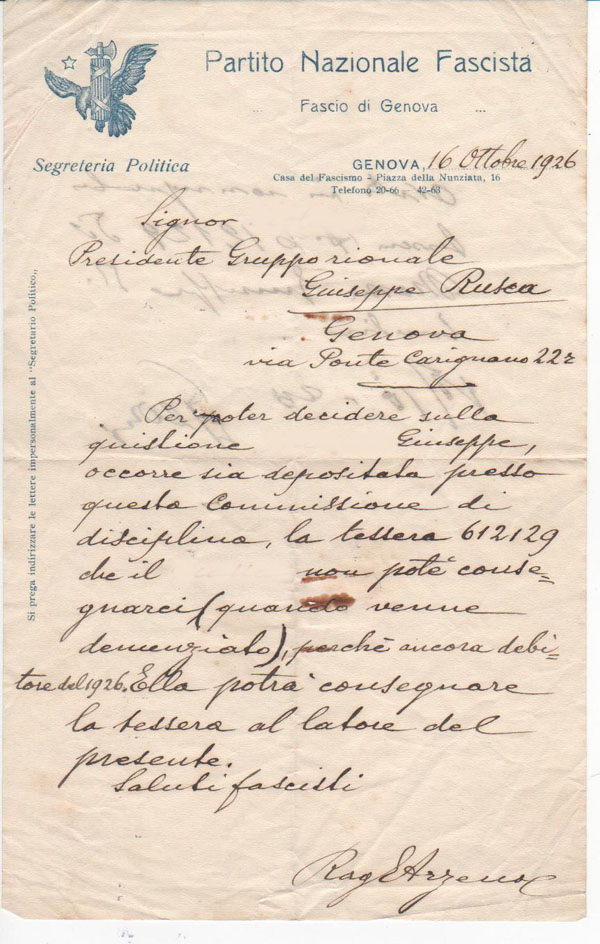 Partito Nazionale Fascista
Fascio di Genova
Segreteria Politica
GENOVA, 16 Ottobre 1926
Casa del Fascismo - Piazza della Nunziata, 16
Telefono 20-66 42-63
Signor
Presidente Gruppo rionale
Giuseppe Rusca
Genova
via Ponte Carignano 22r
Per poter decidere sulla
quistione Giuseppe,
occorre sia depositata presso
questa commissione di
disciplina, la tessera 612129
che il non potè conse-
gnarci (quando venne
denunziato), perchè ancora debi-
tore del 1926. Ella potrà consegnare
la tessera al latore del
presente.
Saluti fascisti
Rag
Si prega indirizzare le lettere impersonalmente al "Segretario Politico„